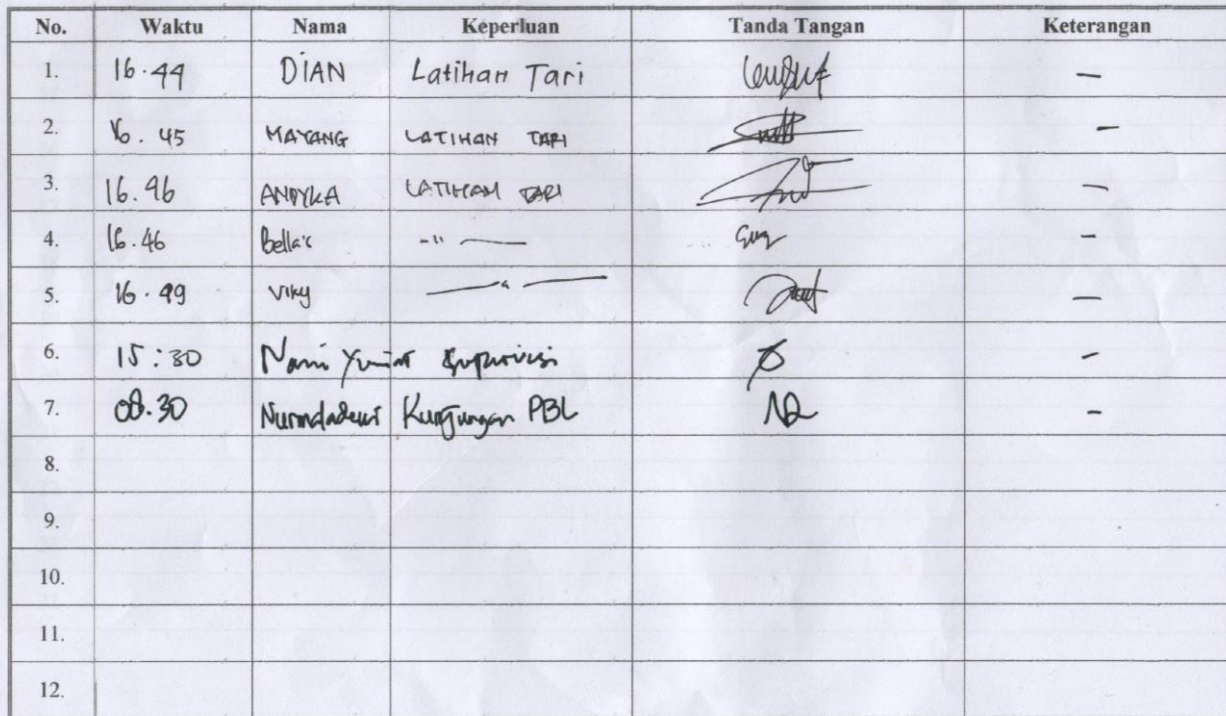 No. Waktu Nama Keperluan Tanda Tangan Keterangan
1. 16.44 DIAN Latihan Tari –
2. 16.45 MAYANG LATIHAN TARI –
3. 16.46 ANDYKA LATIHAN TARI –
4. 16.46 Bella's -"- –
5. 16.49 Viky —"— –
6. 15:30 Supervisi –
7. 08.30 Kunjungan PBL –
8.
9.
10.
11.
12.